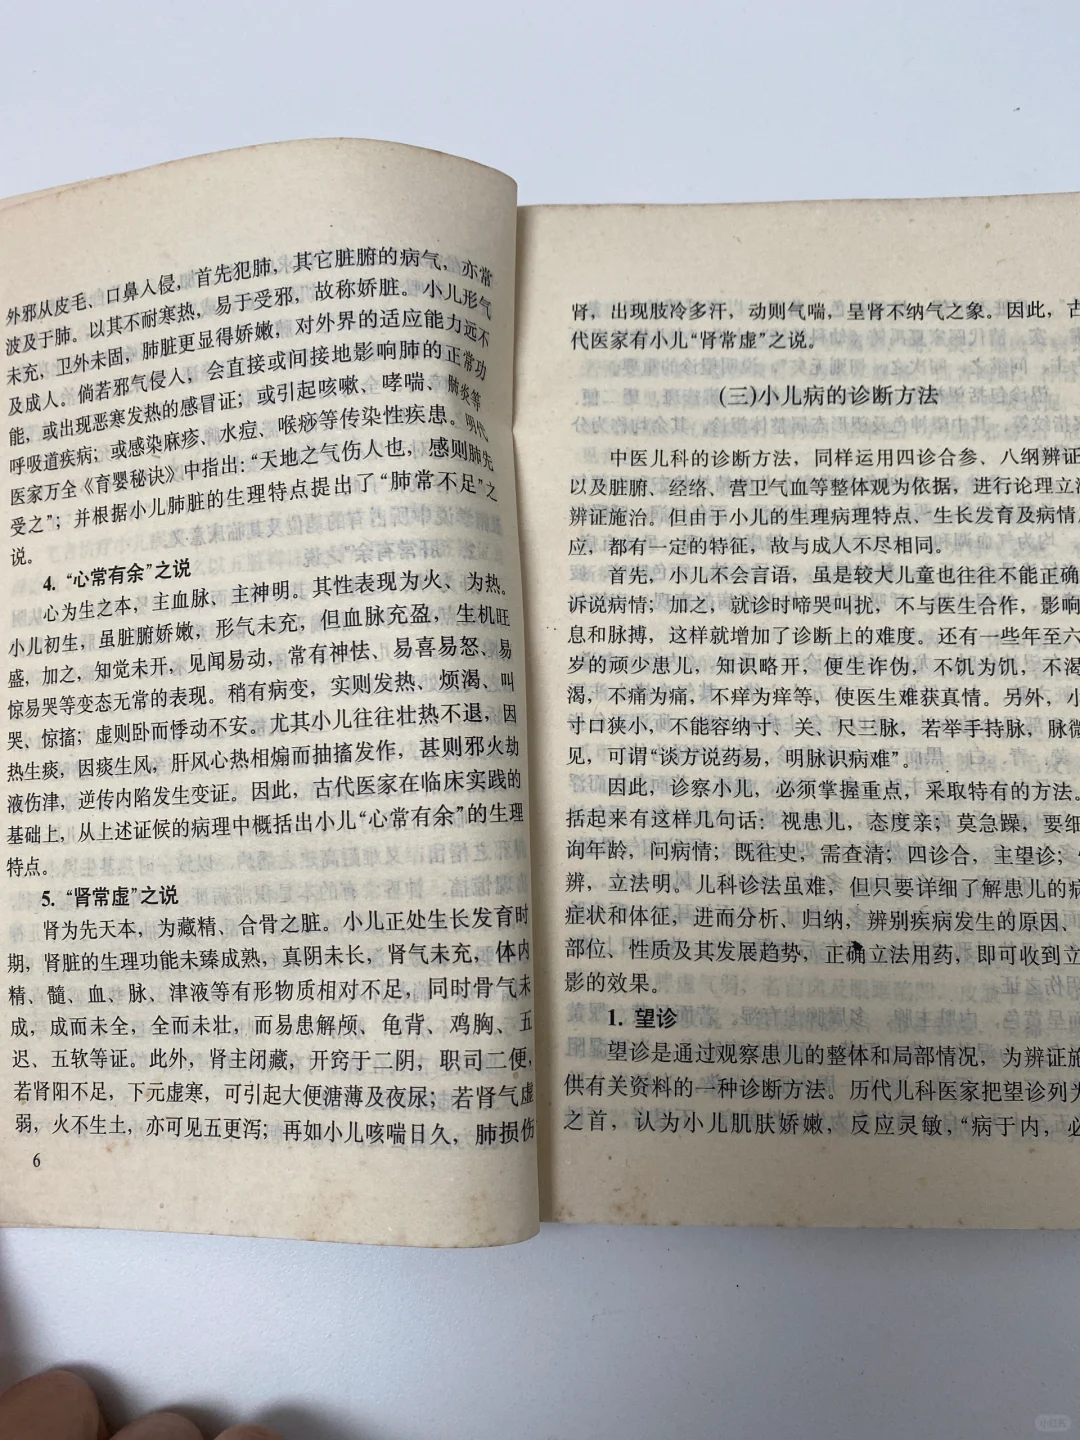 外邪从皮毛、口鼻入侵，首先犯肺，其它脏腑的病气，亦常
波及于肺。以其不耐寒热，易于受邪，故称娇脏。小儿形气
未充，卫外未固，肺脏更显得娇嫩，对外界的适应能力远不
及成人。倘若邪气侵入，会直接或间接地影响肺的正常功
能，或出现恶寒发热的感冒证；或引起咳嗽、哮喘、肺炎等
呼吸道疾病；或感染麻疹、水痘、喉痧等传染性疾患。明代
医家万全《育婴秘诀》中指出：“天地之气伤人也，感则肺先
受之”；并根据小儿肺脏的生理特点提出了“肺常不足”之
说。
4. “心常有余”之说
心为生之本，主血脉、主神明。其性表现为火、为热。
小儿初生，虽脏腑娇嫩，形气未充，但血脉充盈，生机旺
盛，加之，知觉未开，见闻易动，常有神怯、易喜易怒、易
惊易哭等变态无常的表现。稍有病变，实则发热、烦渴、叫
哭、惊搐；虚则卧而悸动不安。尤其小儿往往壮热不退，因
热生痰，因痰生风，肝风心热相煽而抽搐发作，甚则邪火劫
液伤津，逆传内陷发生变证。因此，古代医家在临床实践的
基础上，从上述证候的病理中概括出小儿“心常有余”的生理
特点。
5. “肾常虚”之说
肾为先天本，为藏精、合骨之脏。小儿正处生长发育时
期，肾脏的生理功能未臻成熟，真阴未长，肾气未充，体内
精、髓、血、脉、津液等有形物质相对不足，同时骨气未
成，成而未全，全而未壮，而易患解颅、龟背、鸡胸、五
迟、五软等证。此外，肾主闭藏，开窍于二阴，职司二便，
若肾阳不足，下元虚寒，可引起大便溏薄及夜尿；若肾气虚
弱，火不生土，亦可见五更泻；再如小儿咳喘日久，肺损伤
6
肾，出现肢冷多汗，动则气喘，呈肾不纳气之象。因此，古
代医家有小儿“肾常虚”之说。
(三)小儿病的诊断方法
中医儿科的诊断方法，同样运用四诊合参、八纲辨证
以及脏腑、经络、营卫气血等整体观为依据，进行论理立法
辨证施治。但由于小儿的生理病理特点、生长发育及病情
应，都有一定的特征，故与成人不尽相同。
首先，小儿不会言语，虽是较大儿童也往往不能正确
诉说病情；加之，就诊时啼哭叫扰，不与医生合作，影响
息和脉搏，这样就增加了诊断上的难度。还有一些年至六
岁的顽少患儿，知识略开，便生诈伪，不饥为饥，不渴
渴，不痛为痛，不痒为痒等，使医生难获真情。另外，小
寸口狭小，不能容纳寸、关、尺三脉，若举手持脉，脉微
见，可谓“谈方说药易，明脉识病难”。
因此，诊察小儿，必须掌握重点，采取特有的方法。
括起来有这样几句话：视患儿，态度亲；莫急躁，要细
询年龄，问病情；既往史，需查清；四诊合，主望诊；
辨，立法明。儿科诊法虽难，但只要详细了解患儿的病
症状和体征，进而分析、归纳，辨别疾病发生的原因、
部位、性质及其发展趋势，正确立法用药，即可收到立
影的效果。
1. 望诊
望诊是通过观察患儿的整体和局部情况，为辨证施
供有关资料的一种诊断方法。历代儿科医家把望诊列
之首，认为小儿肌肤娇嫩，反应灵敏，“病于内，必
小红书